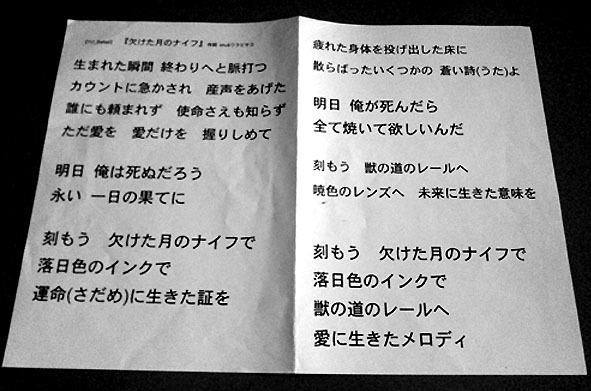 『欠けた月のナイフ』
生まれた瞬間 終わりへと脈打つ
カウントに急かされ 産声をあげた
誰にも頼まれず 使命さえも知らず
ただ愛を 愛だけを 握りしめて
明日 俺は死ぬだろう
永い 一日の果てに
刻もう 欠けた月のナイフで
落日色のインクで
運命(さだめ)に生きた証を
疲れた身体を投げ出した床に
散らばったいくつかの 蒼い詩(うた)よ
明日 俺が死んだら
全て焼いて欲しいんだ
刻もう 獣の道のレールへ
暁色のレンズへ 未来に生きた意味を
刻もう 欠けた月のナイフで
落日色のインクで
獣の道のレールへ
愛に生きたメロディ